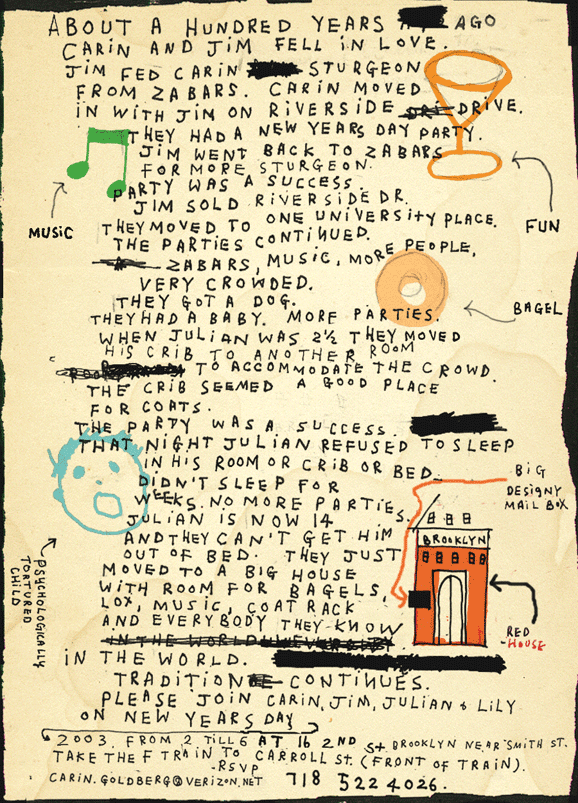 ABOUT A HUNDRED YEARS AGO
CARIN AND JIM FELL IN LOVE.
JIM FED CARIN STURGEON
FROM ZABARS. CARIN MOVED
IN WITH JIM ON RIVERSIDE DRIVE.
THEY HAD A NEW YEARS DAY PARTY.
JIM WENT BACK TO ZABARS
FOR MORE STURGEON.
PARTY WAS A SUCCESS.
JIM SOLD RIVERSIDE DR.
MUSIC
FUN
THEY MOVED TO ONE UNIVERSITY PLACE.
THE PARTIES CONTINUED.
ZABARS, MUSIC, MORE PEOPLE,
VERY CROWDED.
THEY GOT A DOG.
BAGEL
THEY HAD A BABY. MORE PARTIES.
WHEN JULIAN WAS 2½ THEY MOVED
HIS CRIB TO ANOTHER ROOM
TO ACCOMMODATE THE CROWD.
THE CRIB SEEMED A GOOD PLACE
FOR COATS.
THE PARTY WAS A SUCCESS.
THAT NIGHT JULIAN REFUSED TO SLEEP
IN HIS ROOM OR CRIB OR BED.
DIDN'T SLEEP FOR
WEEKS. NO MORE PARTIES.
BIG
DESIGNY
MAIL BOX
JULIAN IS NOW 14
AND THEY CAN'T GET HIM
OUT OF BED. THEY JUST
BROOKLYN
MOVED TO A BIG HOUSE
WITH ROOM FOR BAGELS,
LOX, MUSIC, COAT RACK
AND EVERYBODY THEY KNOW
PSYCHOLOGICALLY
TORTURED
CHILD
RED
-HOUSE
IN THE WORLD.
TRADITION CONTINUES.
PLEASE JOIN CARIN, JIM, JULIAN & LILY
ON NEW YEARS DAY
2003. FROM 2 TILL 6 AT 16 2ND St. BROOKLYN NEAR SMITH ST.
TAKE THE F TRAIN TO CARROLL ST. (FRONT OF TRAIN).
-RSVP
CARIN.GOLDBERG@VERIZON.NET 718 522 4026.